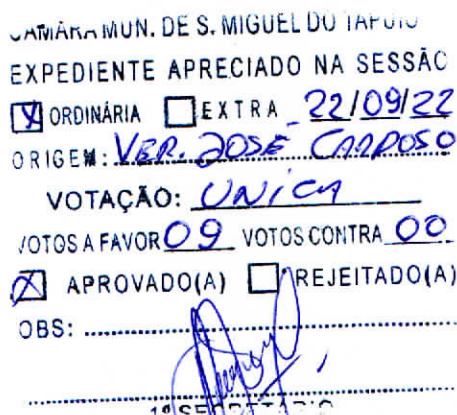 CAMARA MUN. DE S. MIGUEL DO TAPUIO
EXPEDIENTE APRECIADO NA SESSÃO
X ORDINÁRIA EXTRA 22/09/22
ORIGEM: VER. JOSÉ CARDOSO
VOTAÇÃO: UNICA
VOTOS A FAVOR 09 VOTOS CONTRA 00
X APROVADO(A) REJEITADO(A)
OBS: ........................
1º SECRETARIO